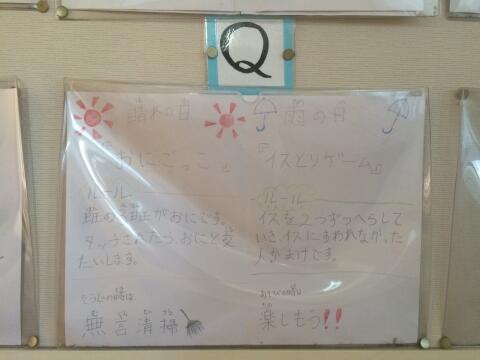 Q
晴れの日
『おにごっこ』
ルール
班の3班がおにです。
タッチされたら、おにと交
たいします。
そうじの時は、
無言清掃
雨の日
『イスとりゲーム』
ルール
イスを2つずつへらして
いき、イスにすわれなかった
人がまけです。
あそびの時は
楽しもう!!